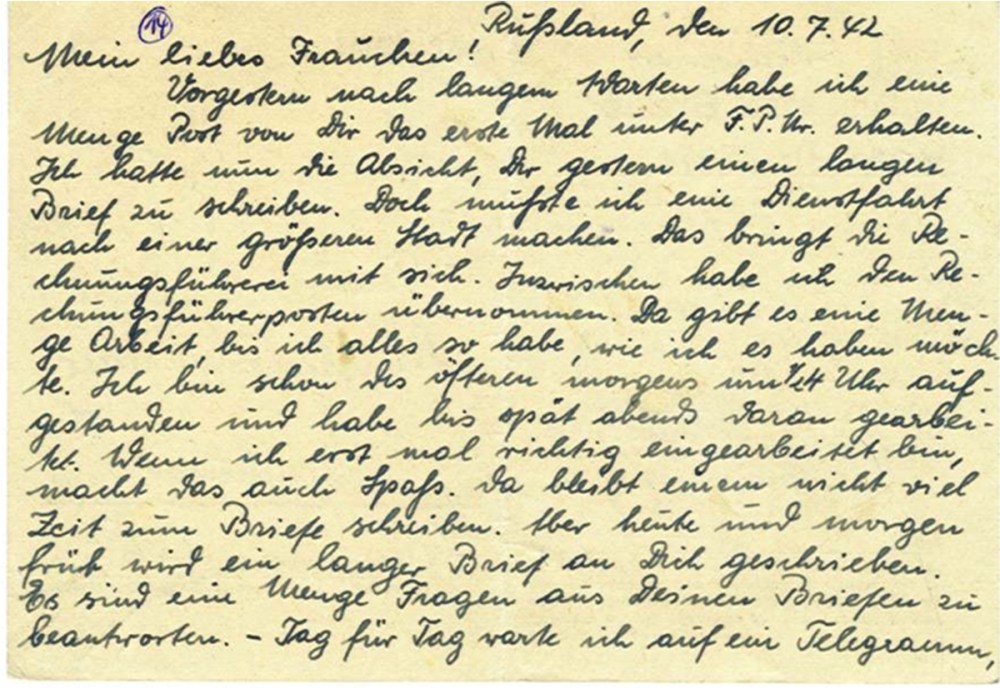 14
Rußland, den 10.7.42
Mein liebes Frauchen!
Vorgestern nach langem Warten habe ich eine
Menge Post von Dir das erste Mal unter F.P.Nr. erhalten.
Ich hatte nun die Absicht, Dir gestern einen langen
Brief zu schreiben. Doch mußte ich eine Dienstfahrt
nach einer größeren Stadt machen. Das bringt die Re-
chnungsführerei mit sich. Inzwischen habe ich den Re-
chnungsführerposten übernommen. Da gibt es eine Men-
ge Arbeit, bis ich alles so habe, wie ich es haben möch-
te. Ich bin schon des öfteren morgens um Uhr auf-
gestanden und habe bis spät abends daran gearbei-
tet. Wenn ich erst mal richtig eingearbeitet bin,
macht das auch Spaß. Da bleibt einem nicht viel
Zeit zum Briefe schreiben. Aber heute und morgen
früh wird ein langer Brief an Dich geschrieben.
Es sind eine Menge Fragen aus Deinen Briefen zu
beantworten. – Tag für Tag warte ich auf ein Telegramm,